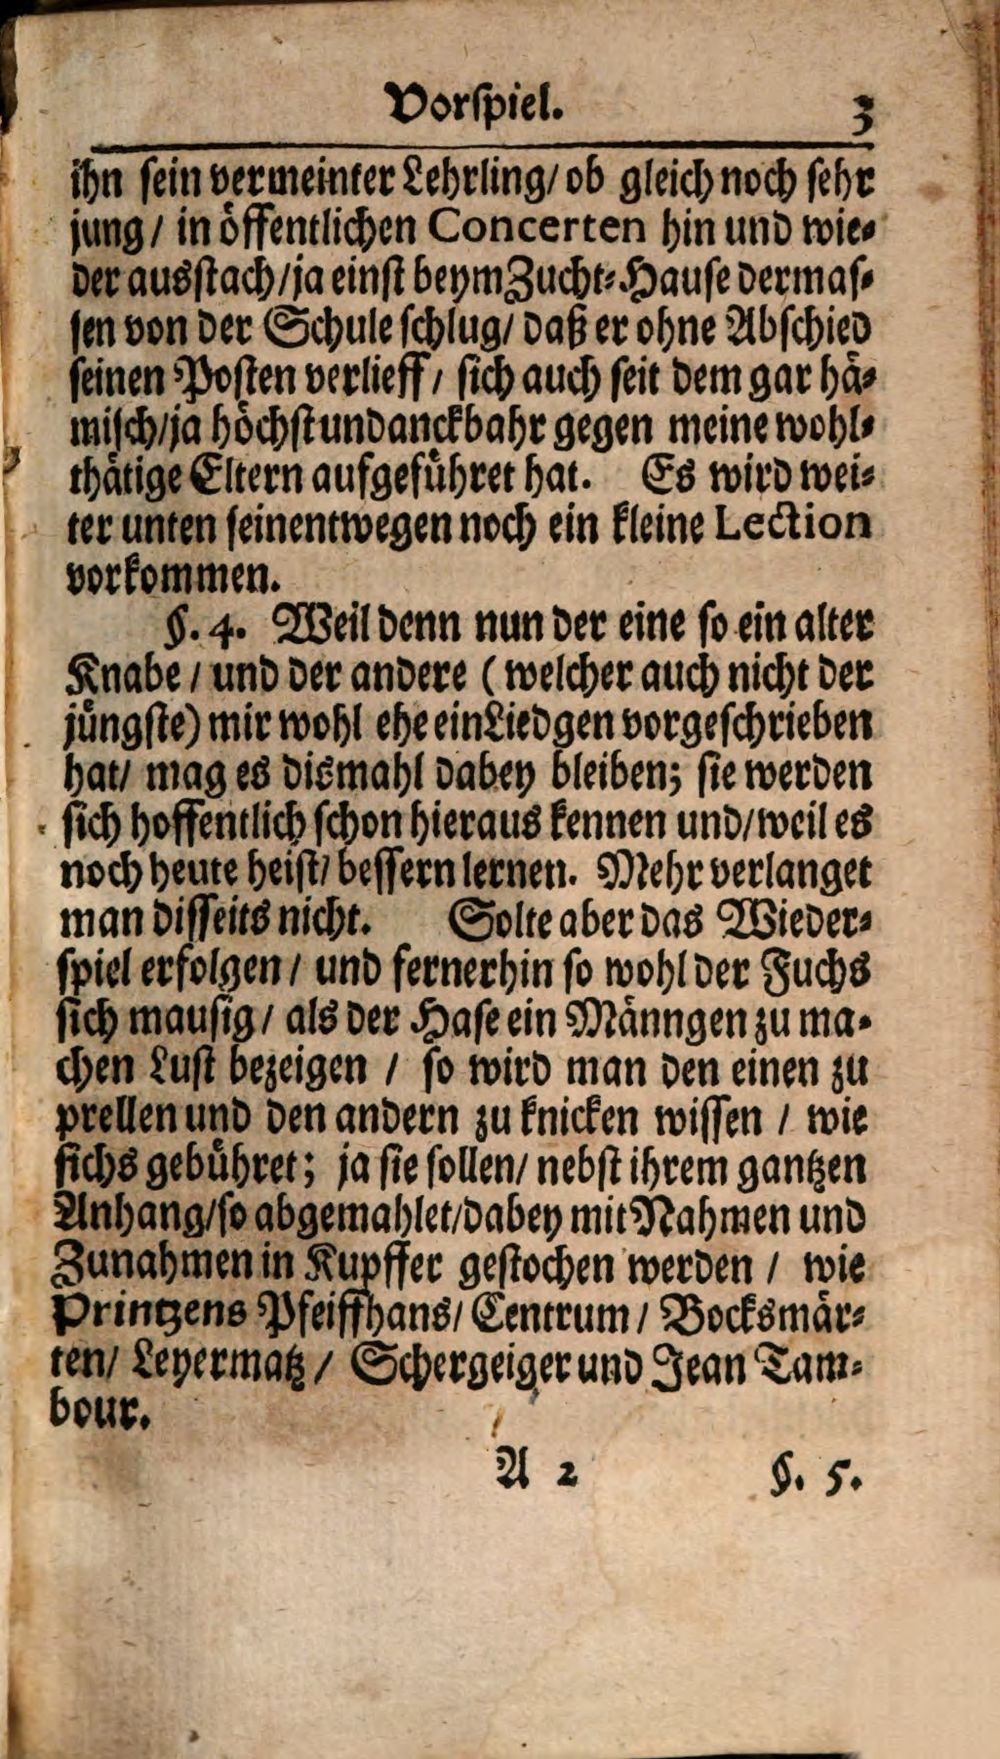 Vorspiel. 3
ihn sein vermeinter Lehrling/ ob gleich noch sehr
jung / in öffentlichen Concerten hin und wie-
der ausstach/ja einst beym Zucht-Hause dermas-
sen von der Schule schlug/ daß er ohne Abschied
seinen Posten verlieff / sich auch seit dem gar hä-
misch/ja höchst undanckbahr gegen meine wohl-
thätige Eltern aufgeführet hat. Es wird wei-
ter unten seinentwegen noch ein kleine Lection
vorkommen.
§. 4. Weil denn nun der eine so ein alter
Knabe / und der andere ( welcher auch nicht der
jüngste) mir wohl ehe ein Liedgen vorgeschrieben
hat/ mag es dismahl dabey bleiben; sie werden
sich hoffentlich schon hieraus kennen und/weil es
noch heute heist/ bessern lernen. Mehr verlanget
man disseits nicht. Solte aber das Wieder-
spiel erfolgen / und fernerhin so wohl der Fuchs
sich mausig / als der Hase ein Männgen zu ma-
chen Lust bezeigen / so wird man den einen zu
prellen und den andern zu knicken wissen / wie
sichs gebühret; ja sie sollen/ nebst ihrem gantzen
Anhang/so abgemahlet/dabey mit Nahmen und
Zunahmen in Kupffer gestochen werden / wie
Printzens Pfeiffhans/ Centrum / Bocksmär-
ten/ Leyermatz / Schergeiger und Jean Tam-
bour.
A 2 §. 5.